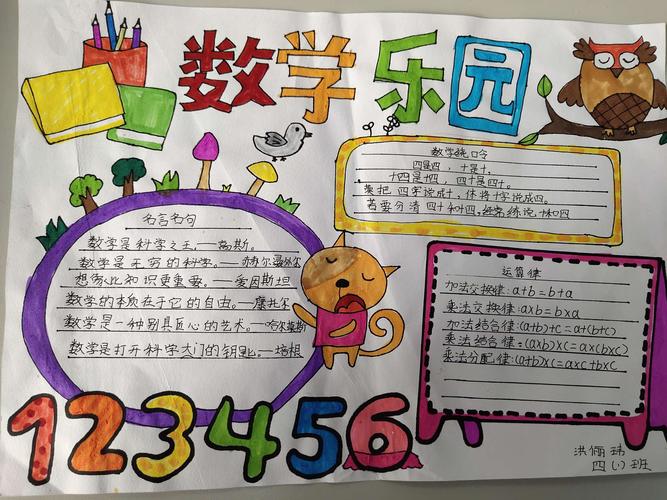 数学乐园
名言名句
数学是科学之王。——高斯。
数学是无穷的科学。——赫尔曼外尔
想象比知识更重要。——爱因斯坦
数学的本质在于它的自由。——康托尔
数学是一种别具匠心的艺术。——哈尔莫斯
数学是打开科学大门的钥匙。——培根
数学绕口令
四是四,十是十,
十四是十四,四十是四十。
莫把四字说成十,休将十字说成四。
若要分清四十和十四,经常练说十和四
运算律
加法交换律:a+b=b+a
乘法交换律:a×b=b×a
加法结合律:(a+b)+c=a+(b+c)
乘法结合律:(a×b)×c=a×(b×c)
乘法分配律:(a+b)×c=a×c+b×c
123456
洪俪玮
四(1)班